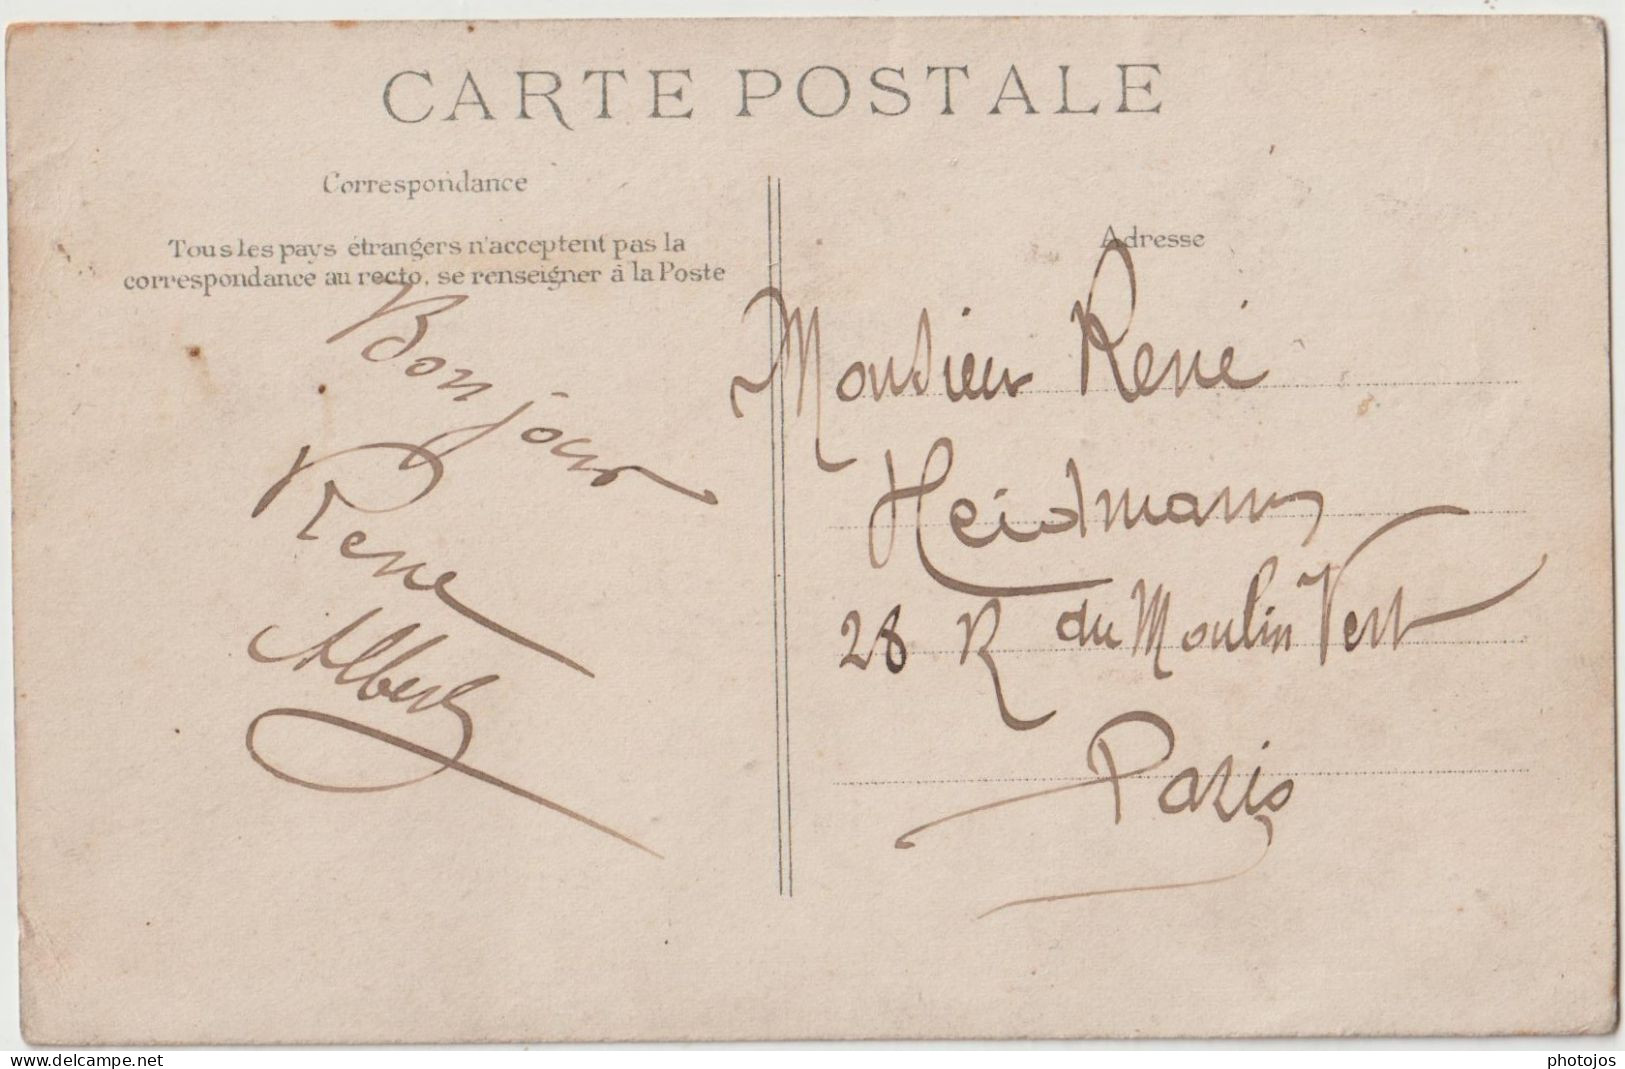 CARTE POSTALE
Correspondance
Tous les pays étrangers n'acceptent pas la
correspondance au recto, se renseigner à la Poste
Bonjour
Rene
Albert
Adresse
Monsieur René
Heidmann
28 R du Moulin Vert
Paris
delcampe.net
photojos